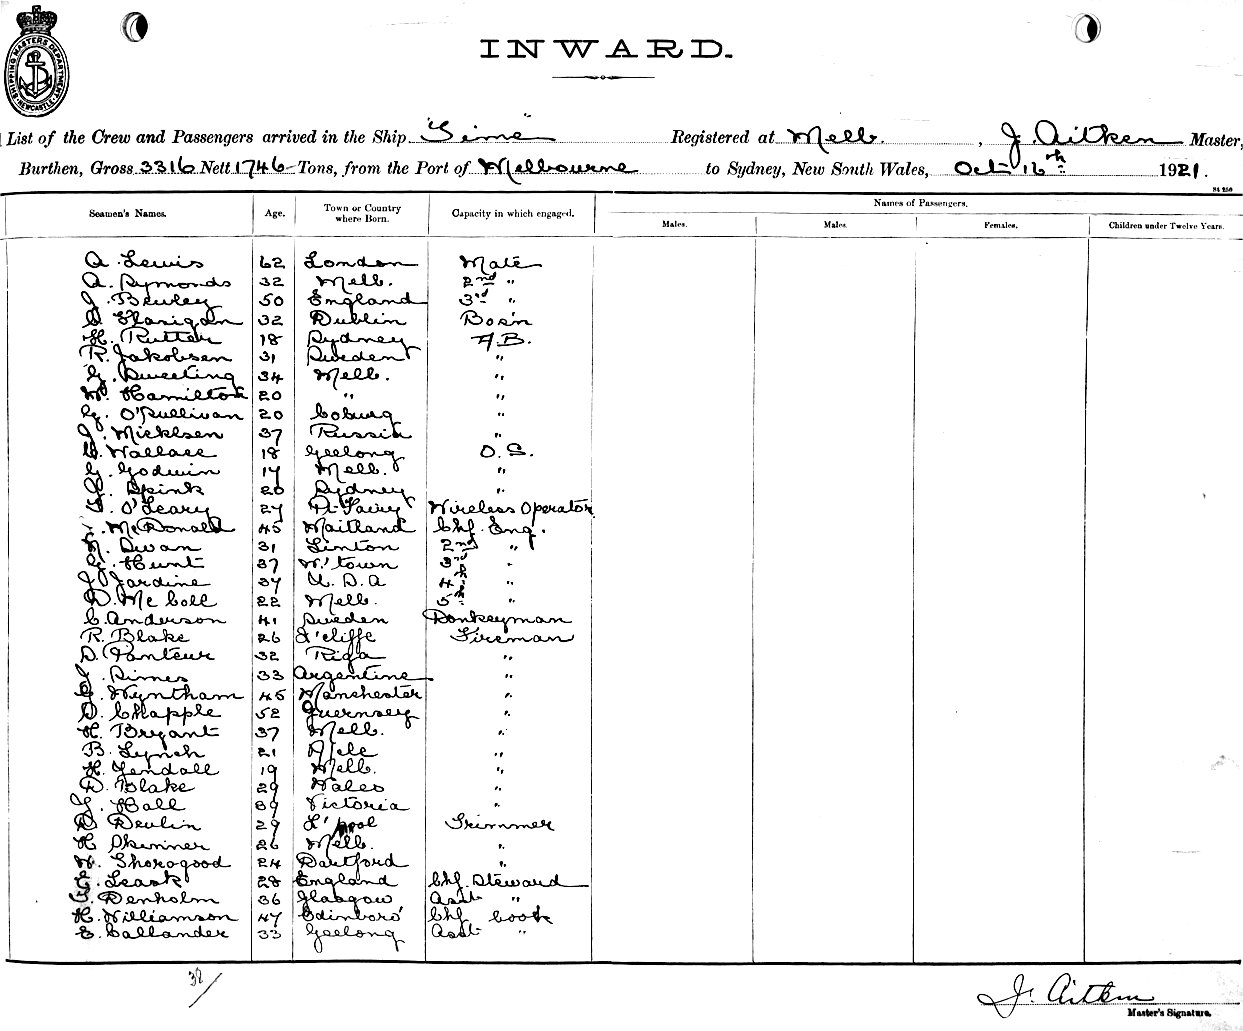 SHIPPING MASTERS DEPARTMENT
NEWCASTLE
INWARD.
List of the Crew and Passengers arrived in the Ship "Time" Registered at Melb. , J. Aitken Master,
Burthen, Gross 3316 Nett 1746 Tons, from the Port of Melbourne to Sydney, New South Wales, Oct 16th 1921.
Seamen's Names. Age. Town or Country where Born. Capacity in which engaged. Names of Passengers.
Males. Males. Females. Children under Twelve Years.
A. Lewis 62 London Mate
A. Symonds 32 Melb. 2nd "
J. 50 England 3rd "
Flanigan 32 Dublin Bosn
H. Rutter 18 Sydney A.B.
R. Jakobsen 31 Sweden "
G. Sweeting 34 Melb. "
W. Hamilton 20 " "
G. O'Sullivan 20 Coburg "
J. Micklsen 37 Russia "
W. Wallace 18 Geelong O.S.
G. Godwin Melb. "
Spink 20 Sydney "
O'Leary 27 Pt Fairy Wireless Operator
McDonald 45 Maitland Chf. Eng.
N. Swan 31 Linton 2nd "
G. Hunt 37 W'town 3rd "
J. Jardine 37 U.S.A 4th "
D. McColl 22 Melb. 5th "
C. Anderson 41 Sweden Donkeyman
R. Blake 26 S'cliffe Fireman
D. 32 Riga "
J. Simes 33 Argentine "
Wyntham 45 Manchester "
D. Chapple 52 Guernsey "
H. Bryant 37 Melb. "
B. Lynch 21 "
H. Yendall 19 Melb. "
D. Blake 29 Wales "
Hall 39 Victoria "
D. Devlin 29 L'pool Trimmer
H. Skinner 26 Melb. "
W. Shorogood 24 Dartford "
Leask 28 England Chf. Steward
Denholm 36 Glasgow Asst "
H. Williamson 47 Edinboro' Chf Cook
E. Callander 33 Geelong Asst "
38/
J. Aitken
Master's Signature.